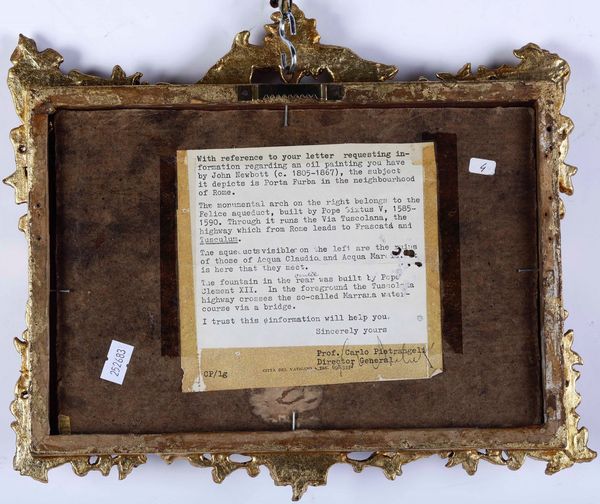 With reference to your letter requesting in-
formation regarding an oil painting you have
by John Newbott (c. 1805-1867), the subject
it depicts is Porta Furba in the neighbourhood
of Rome.
The monumental arch on the right belongs to the
Felice aqueduct, built by Pope Sixtus V, 1585-
1590. Through it runs the Via Tuscolana, the
highway which from Rome leads to Frascati and
Tusculum.
The aqueducts visible on the left are the ruins
of those of Acqua Claudio and Acqua
is here that they meet.
The fountain in the rear was built by Pope
Clement XII. In the foreground the Tuscolana
highway crosses the so-called Marrana water-
course via a bridge.
I trust this information will help you.
Sincerely yours
Prof. Carlo Pietrangeli
Director General
CP/lg
CITTÀ DEL VATICANO
4
252683